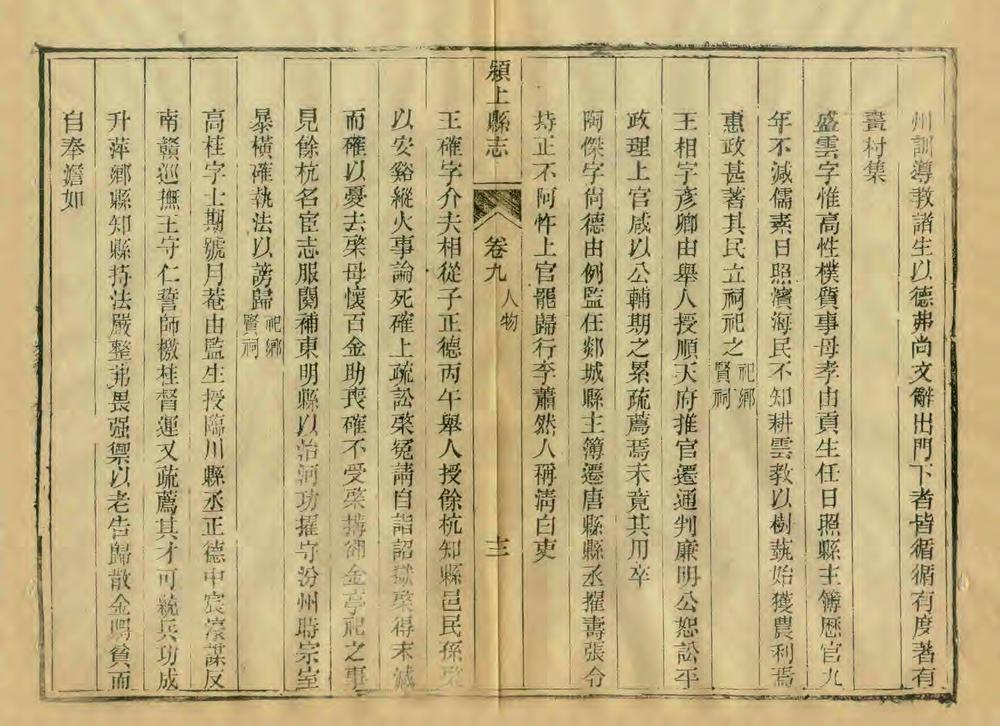 州訓導教諸生以德弗尚文辭出門下者皆循循有度著有
畫村集
盛雲字惟高性樸質事母孝由貢生任日照縣主簿歷官九
年不減儒素日照濱海民不知耕雲教以樹蓺始獲農利焉
惠政甚著其民立祠祀之祀鄉賢祠
王相字彥卿由舉人授順天府推官遷通判廉明公恕訟平
政理上官咸以公輔期之累疏薦焉未竟其用卒
陶傑字尙德由例監任郯城縣主簿遷唐縣縣丞擢壽張令
持正不阿忤上官罷歸行李蕭然人稱淸白吏
潁上縣志 卷九 人物 十二
王確字介夫相從子正德丙午舉人授餘杭知縣邑民孫榮
以安谿縱火事論死確上疏訟榮冤請自詣詔獄榮得末減
而確以憂去榮母懷百金助喪確不受榮搆卻金亭祀之事
見餘杭名宦志服闋補東明縣以治河功擢守汾州時宗室
暴橫確執法以謗歸祀鄉賢祠
高桂字士期號月菴由監生授臨川縣丞正德中宸濠謀反
南贛巡撫王守仁誓師檄桂督運又疏薦其才可統兵功成
升萍鄉縣知縣持法嚴整弗畏强禦以老告歸散金賙貧而
自奉澹如